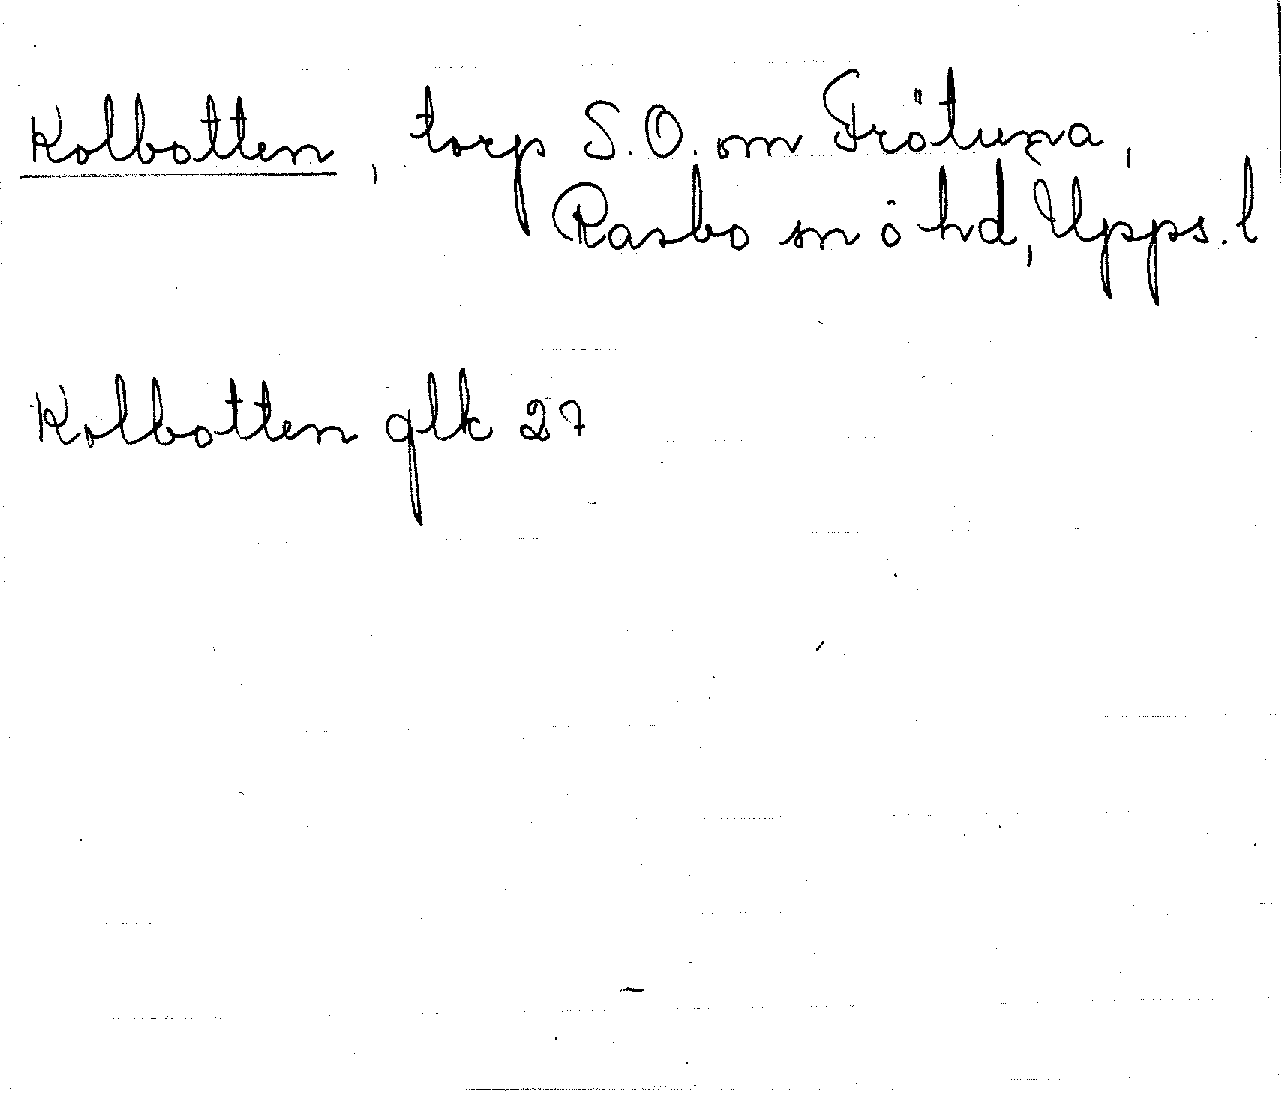 Kolbotten, torp S.O. om Frötuna,
Rasbo sn o hd, Upps. l
Kolbotten glk 27